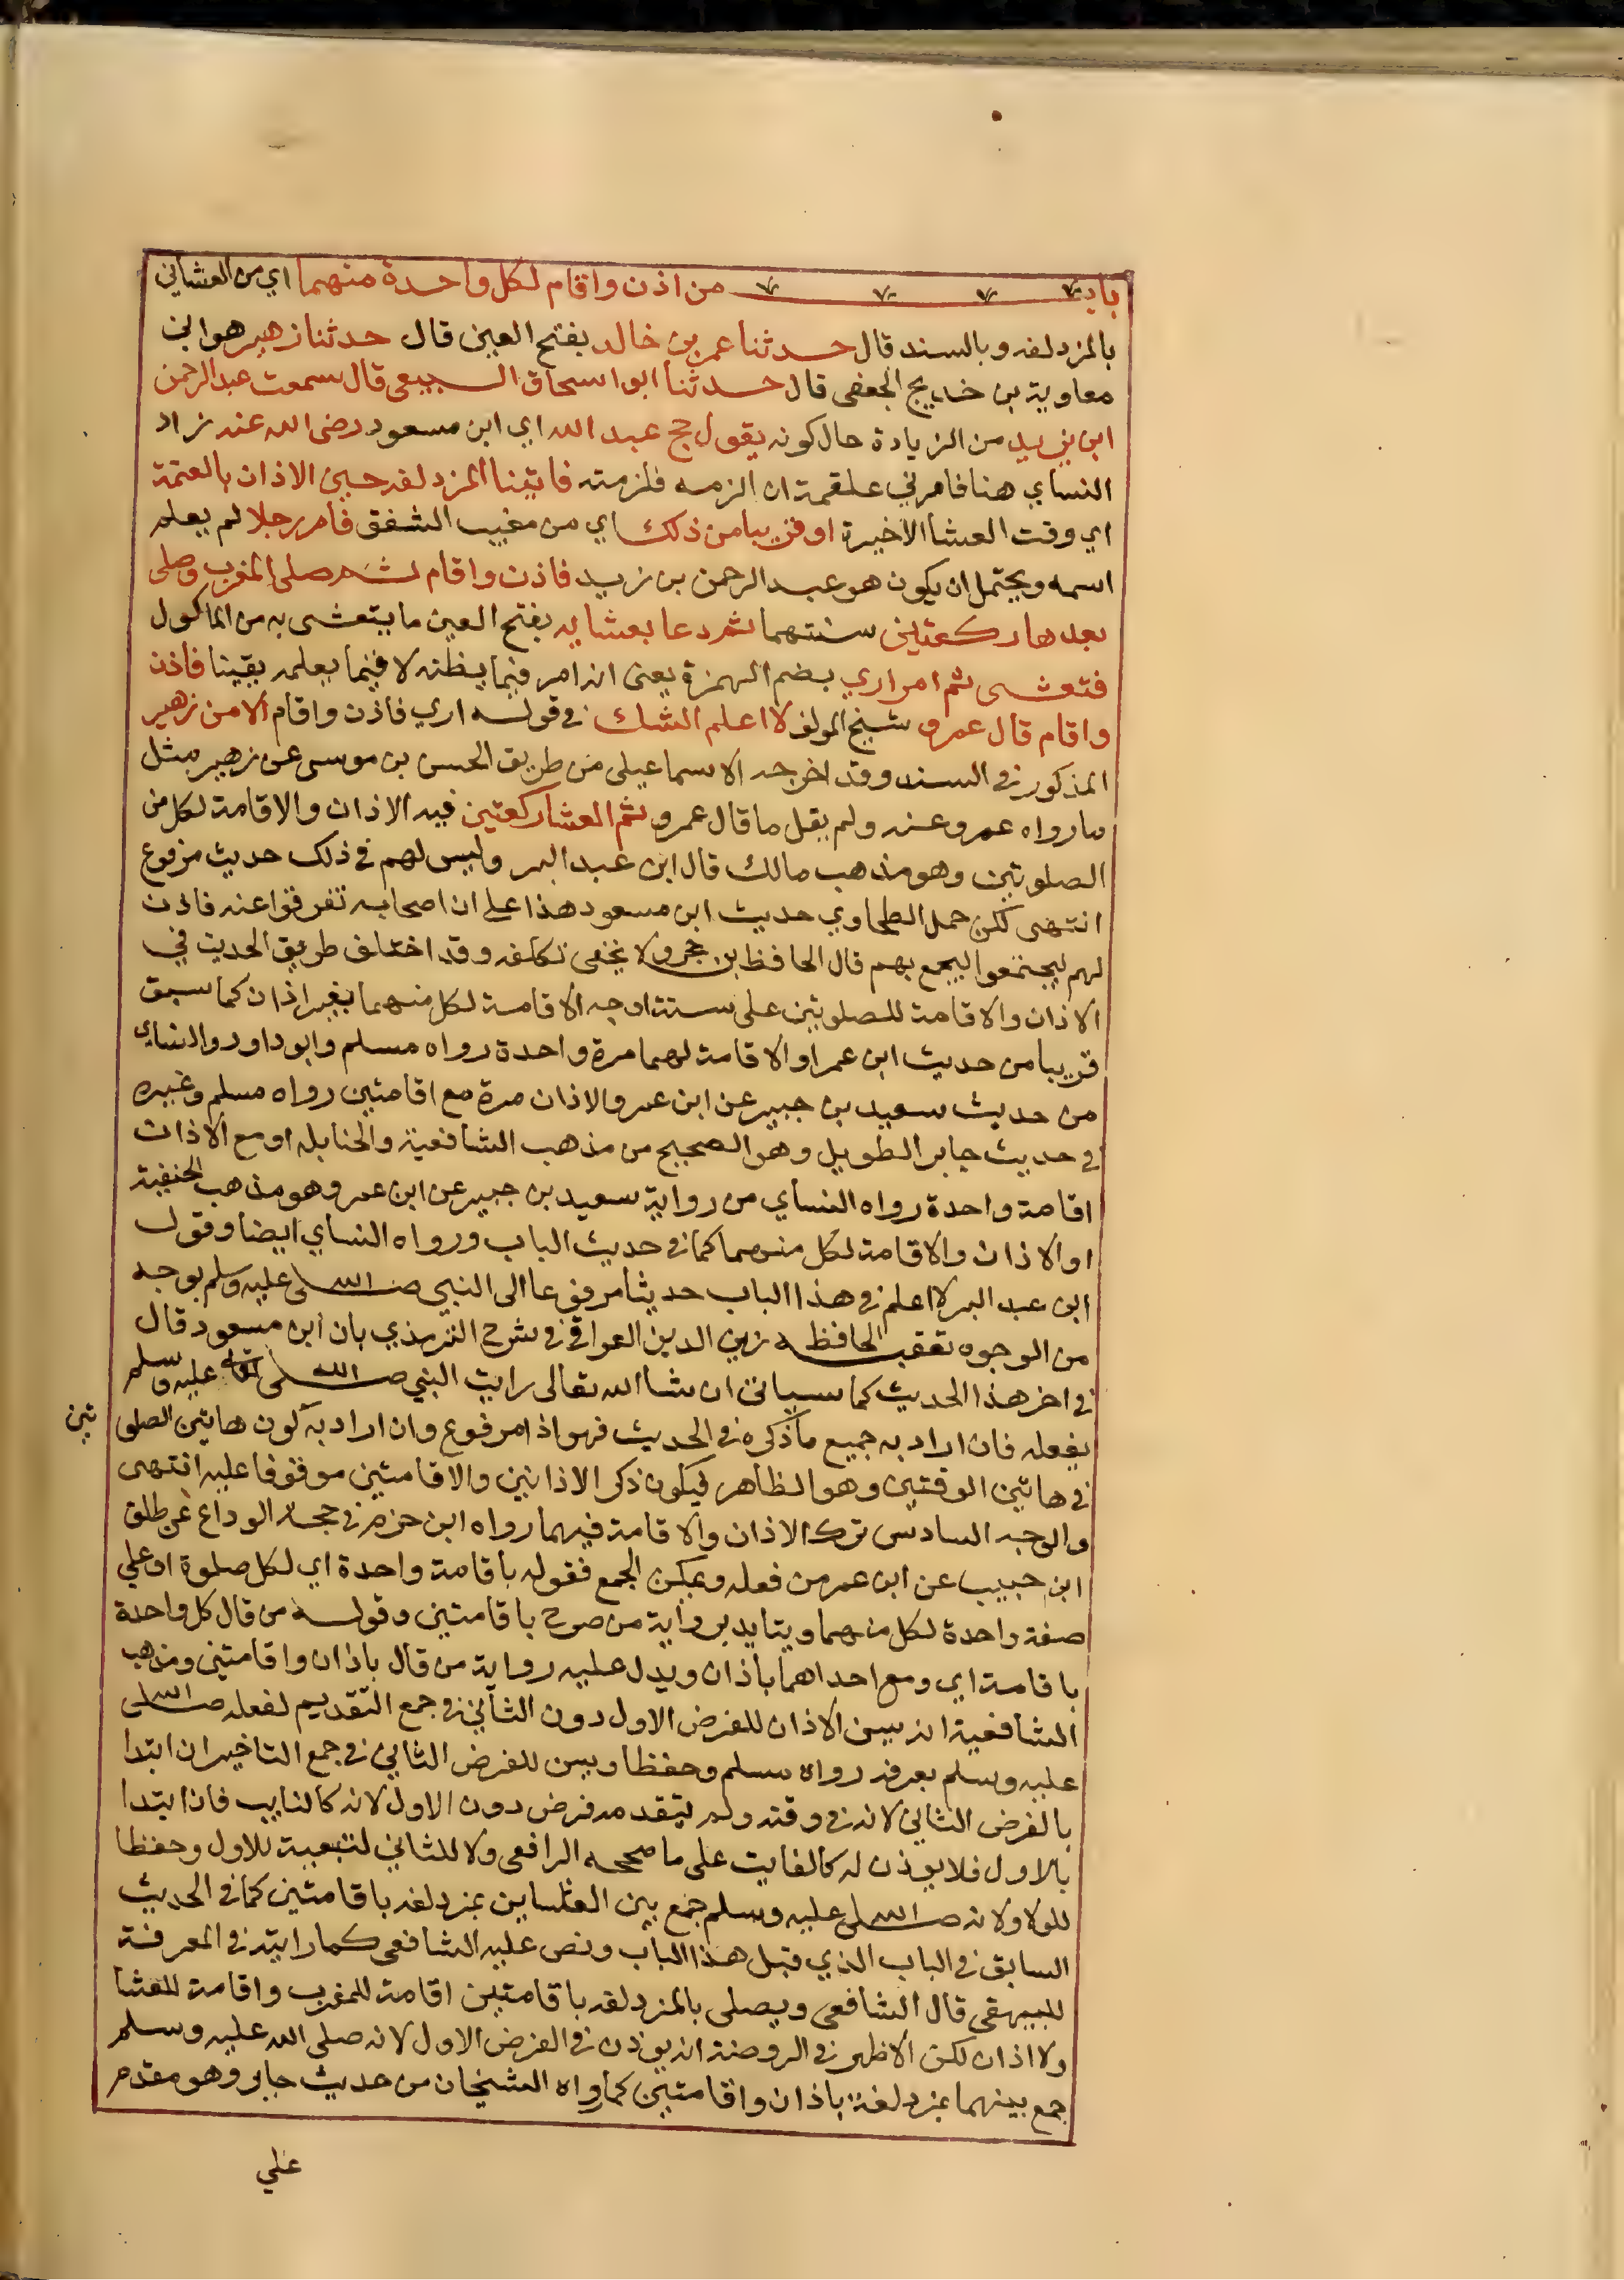 باب من اذن واقام لكل واحدة منهما اي من العشائين
بالمزدلفه وبالسند قال حدثنا عمر بن خالد بفتح العين قال حدثنا زهير هو ابن
معاوية بن خديج الجعفى قال حدثنا ابو اسحاق السبيعى قال سمعت عبد الرحمن
ابن يزيد من الزيادة حال كونه يقول حج عبد الله اي ابن مسعود رضى الله عنه زاد
النساي هنا فامرني علقمة ان الزمه فلزمته فاتينا المزدلفه حين الاذان بالعتمة
اي وقت العشا الاخيرة او قريبا من ذلك اي من مغيب الشفق فامر رجلا لم يعلم
اسمه ويحتمل ان يكون هو عبد الرحمن بن زيد فاذن واقام ثم صلى المغرب وصلى
بعدها ركعتين سنتهما ثم دعا بعشايه بفتح العين ما يتعشى به من الماكول
فتعشى ثم امر اري بضم الهمزة يعنى انه امر فيما يظنه لا فيما يعلمه يقينا فاذن
واقام قال عمرو شيخ المولف لا اعلم الشك في قوله اري فاذن واقام الا من زهير
المذكور في السند وقد اخرجه الاسماعيلى من طريق الحسن بن موسى عن زهير مثل
ما رواه عمرو عنه ولم يقل ما قال عمرو ثم العشا ركعتين فيه الاذان والاقامة لكل من
الصلوتين وهو مذهب مالك قال ابن عبد البر وليس لهم في ذلك حديث مرفوع
انتهى لكن حمل الطحاوي حديث ابن مسعود هذا على ان اصحابه تفرقوا عنه فاذن
لهم ليجتمعوا ليجمع بهم قال الحافظ بن حجر ولا يخفى تكلفه وقد اختلف طريق الحديث في
الاذان والاقامة للصلوتين على ستة اوجه الاقامة لكل منهما بغير اذان كما سبق
قريبا من حديث ابن عمر او الاقامة لهما مرة واحدة رواه مسلم وابو داود والنساي
من حديث سعيد بن جبير عن ابن عمر والاذان مرة مع اقامتين رواه مسلم وغيره
في حديث جابر الطويل وهو الصحيح من مذهب الشافعية والحنابله او مع الاذان
اقامة واحدة رواه النساي من رواية سعيد بن جبير عن ابن عمر وهو مذهب الحنفية
او الاذان والاقامة لكل منهما كما في حديث الباب ورواه النساي ايضا وقول
ابن عبد البر لا اعلم في هذا الباب حديثا مرفوعا الى النبي صلى الله عليه وسلم بوجه
من الوجوه تعقبه الحافظ زين الدين العراقي في شرح الترمذي بان ابن مسعود قال
في اخر هذا الحديث كما سياتى ان شا الله تعالى رايت النبي صلى الله تعالى عليه وسلم
يفعله فان اراد به جميع ما ذكره في الحديث فهو اذا مرفوع وان اراد به كون هاتين الصلو
تين
في هاتين الوقتين وهو الظاهر فيكون ذكر الاذانين والاقامتين موقوفا عليه انتهى
والوجه السادس ترك الاذان والاقامة فيهما رواه ابن حزم في حجة الوداع عن طلق
ابن حبيب عن ابن عمر من فعله ويمكن الجمع فقوله باقامة واحدة اي لكل صلوة او على
صفة واحدة لكل منهما ويتايد برواية من صرح باقامتين وقوله من قال كل واحدة
باقامة اي ومع احداهما باذان ويدل عليه رواية من قال باذان واقامتين ومذهب
الشافعية انه يسن الاذان للفرض الاول دون الثاني في جمع التقديم لفعله صلى الله
عليه وسلم بعرفة رواه مسلم وحفظا ويسن للفرض الثاني في جمع التاخير ان ابتدا
بالفرض الثاني لانه في وقته ولم يتقدمه فرض دون الاول لانه كالنايب فاذا ابتدا
بالاول فلا يوذن له كالفايت على ما صححه الرافعى ولا للثاني لتبعية للاول وحفظا
للولا ولانه صلى الله عليه وسلم جمع بين العشاين بمزدلفه باقامتين كما في الحديث
السابق في الباب الذي قبل هذا الباب ونص عليه الشافعى كما رايته في المعرفة
للبيهقى قال الشافعى ويصلى بالمزدلفه باقامتين اقامة للمغرب واقامة للعشا
ولا اذان لكن الاظهر في الروضة انه يوذن في الفرض الاول لانه صلى الله عليه وسلم
جمع بينهما بمزدلفة باذان واقامتين كما رواه الشيخان من حديث جابر وهو مقدم
على